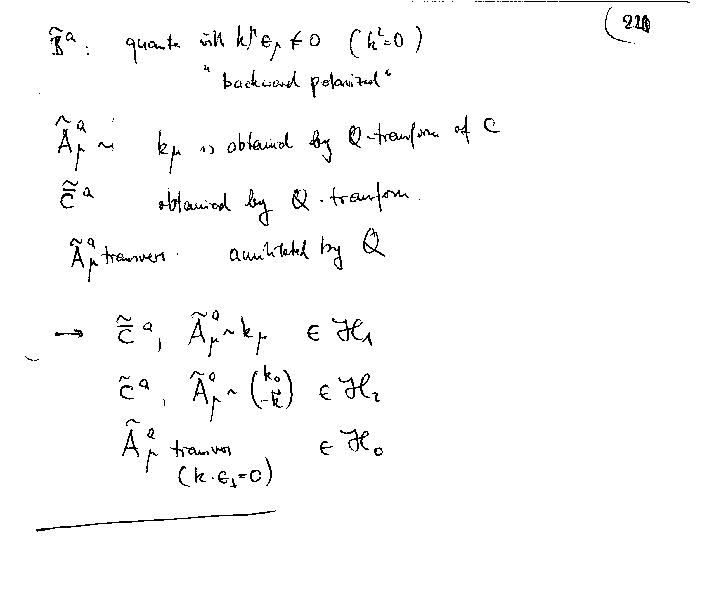 220
B̃ᵃ: quanta with k^μ ε_μ ≠ 0 (k²=0)
"backward polarized"
Ã_μ^a ~ k_μ is obtained by Q-transform of C
C̄̃ᵃ obtained by Q-transform.
Ã_μ^a transvers. annihilated by Q
→ C̄̃ᵃ, Ã_μ^a ~ k_μ ∈ ℋ₁
C̃ᵃ, Ã_μ^a ~ (k₀ -k⃗) ∈ ℋ₂
Ã_μ^a transvers ∈ ℋ₀
(k·ε_⊥=0)